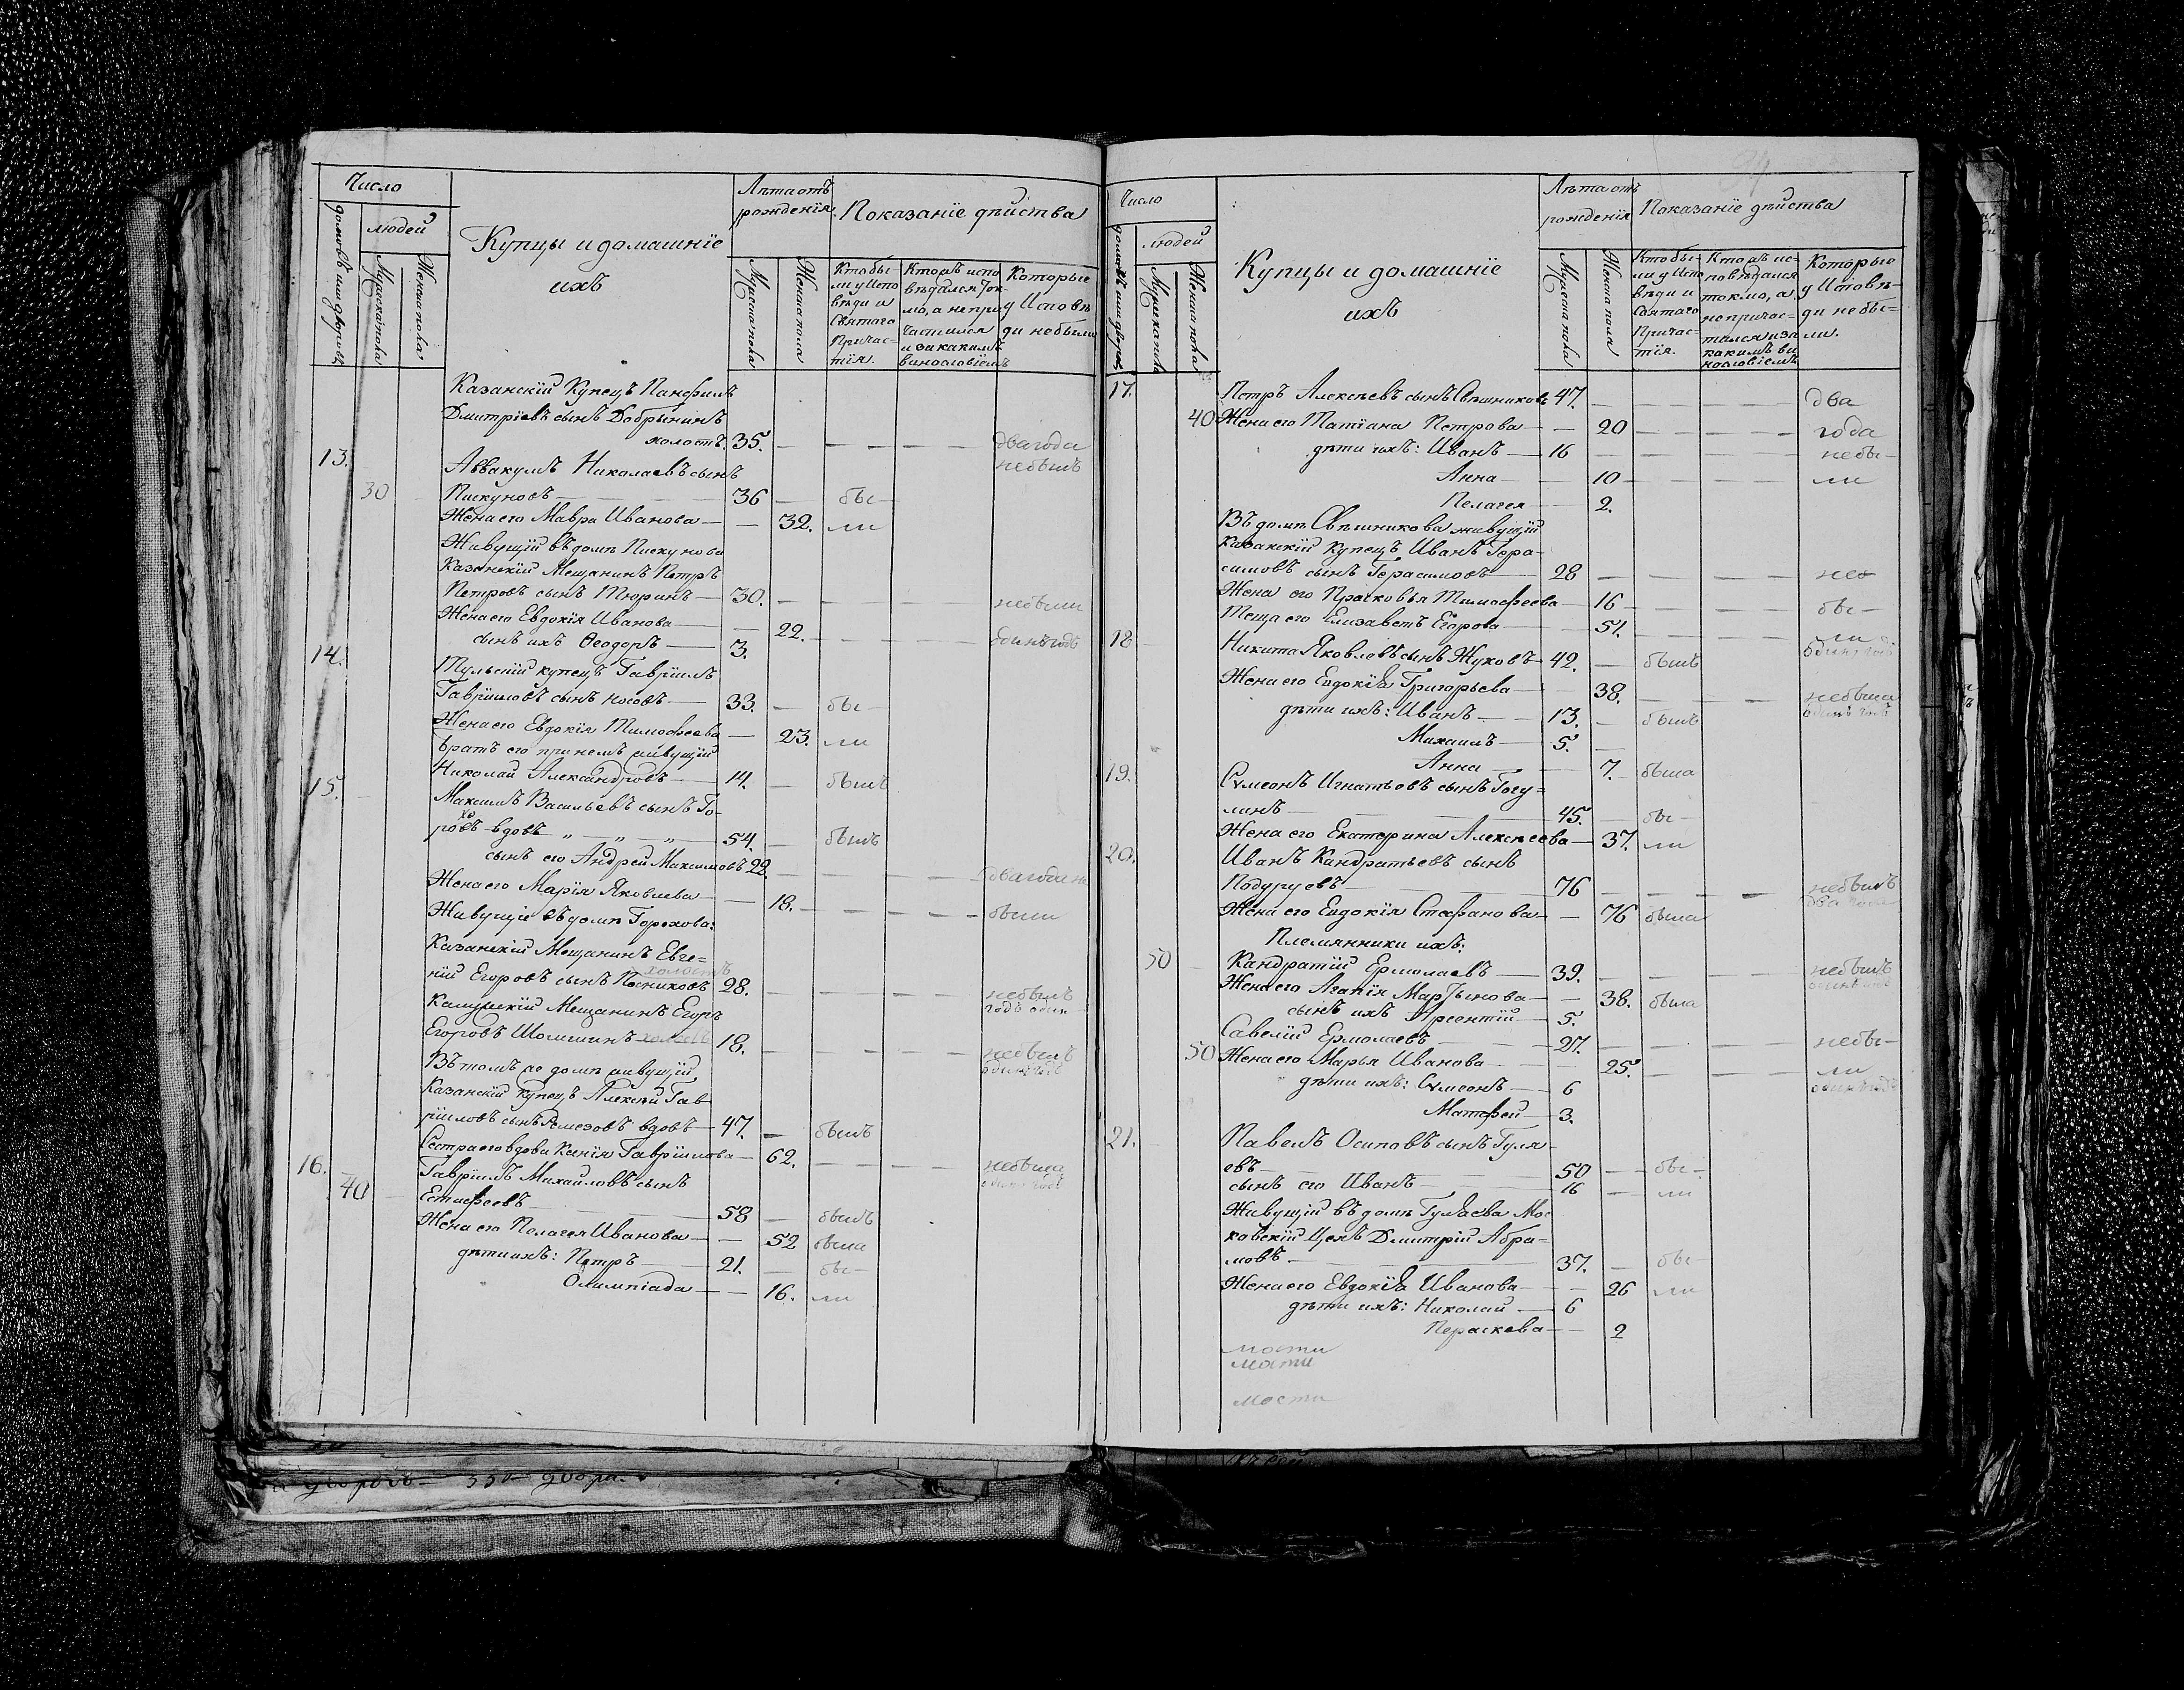 Число
Лѣта отъ рожденія
Показаніе дѣйства
домовъ или дворовъ
людей
Мужеска пола
Женска пола
Купцы и домашніе
ихъ
Мужеска пола
Женска пола
Кто бы-
ли у Испо
вѣди и
Святаго
Причас-
тія.
Кто жъ испо
вѣдался ток-
мо, а не при
частился
и за какимъ
винословіемъ
Которые
у Исповѣ
ди не были
Казанскій Купецъ Панфилъ
Дмитріевъ сынъ Добрынинъ
холостъ. 35. — — — — два года
13. Аввакумъ Николаевъ сынъ небылъ
30 Пискуновъ — 36 — бы-
Жена его Мавра Иванова — — 32. ли
Живущій въ домѣ Пискунова
Казанскій Мещанинъ Петръ
Петровъ сынъ Тюринъ — 30. — — — небыли
Жена его Евдокія Иванова — — 22. — — —
сынъ ихъ Ѳеодоръ — 3. одинъ годъ
14. Тульскій купецъ Гавріилъ
Гавріиловъ сынъ Носовъ — 33. — бы-
Жена его Евдокія Тимофеева — — 23. ли
Братъ его при немъ живущій
Николай Александровъ — 14. — былъ
15. Максимъ Васильевъ сынъ Го-
хо
ровъ вдовъ „ — „ — „ — 54. — былъ
сынъ его Андрей Максимовъ 22. — — — — два года не
Жена его Марія Яковлева — — 18. — — — — были
Живущіе въ домѣ Горохова:
Казанскій Мещанинъ Евге=
холостъ
ній Егоровъ сынъ Посниковъ 28. — — — — небылъ
годъ одинъ
Мещанинъ Егоръ
Егоровъ Шомшинъ холостъ 18. — — — — небылъ
одинъ годъ
Въ томъ же домѣ живущій
Казанскій Купецъ Алексѣй Гав-
ріиловъ сынъ Ремезовъ вдовъ — 47. — былъ
Сестра его вдова Ксенія Гавріилова — 62. — — — — небыла
одинъ годъ
16. Гавріилъ Михайловъ сынъ
40
Естифеевъ — 58 — былъ
Жена его Пелагея Иванова — — 52 была
дѣти ихъ: Петръ — 21. — бы-
Олимпіада — — 16. ли
Число
Лѣта отъ
рожденія
Показаніе дѣйства
домовъ или дворовъ
людей
Мужеска пола
Женска пола
Купцы и домашніе
ихъ
Мужеска пола
Женска пола
Кто бы-
ли у Испо
вѣди и
Святаго
Причас-
тія.
Кто жъ ис-
повѣдался
токмо, а
непричас-
тился и за
какимъ ви
нословіемъ
Которые
у Исповѣ-
ди не бы=
ли.
17. Петръ Алексѣевъ сынъ Свѣшниковъ 47. — — — — два
40 Жена его Татіана Петрова — — 20 — — — — года
дѣти ихъ: Иванъ — 16 — — — — небы-
Анна — — 10 — — — — ли
Пелагея — — 2.
Въ домѣ Свѣшникова живущій
казанскій купецъ Иванъ Гера-
симовъ сынъ Герасимовъ — 28 — — — — не
Жена его Прасковья Тимофеева — 16 — — — — бы-
Теща его Елизаветъ Егорова — — 51. — — — — ли
18 Никита Яковлевъ сынъ Жуковъ — 42. — былъ одинъ годъ
Жена его Евдокія Григорьева — — 38. — — — небыла
дѣти ихъ: Иванъ — 13. — былъ одинъ годъ
Михаилъ — 5. —
Анна — — 7. — была
19. Сѵмеонъ Игнатьевъ сынъ Гогу=
линъ — 45. — бы-
Жена его Екатерина Алексѣева — 37. ли
20. Иванъ Кандратьевъ сынъ
Подуруевъ — 76 — — — — небылъ
два года
Жена его Евдокія Стефанова — — 76 была
Племянники ихъ:
50 Кандратій Ермолаевъ — 39. — — — — небылъ
одинъ годъ
Жена его Агапія Мартынова — — 38. была
сынъ ихъ Арсентій — 5.
Савелій Ермолаевъ — 27. — — — — небы-
50 Жена его Марья Иванова — — 25. — — — ли
дѣти ихъ: Сѵмеонъ — 6 одинъ годъ
Матфей — 3.
21. Павелъ Осиповъ сынъ Гуля-
евъ — 50 — бы-
сынъ его Иванъ — 16 — ли
Живущій въ домѣ Гуляева Мос
ковскій Цехъ Дмитрій Абра=
мовъ — 37. — бы-
Жена его Евдокія Иванова — — 26 ли
дѣти ихъ: Николай — 6
Пераскева — — 2
мости
мости
мости